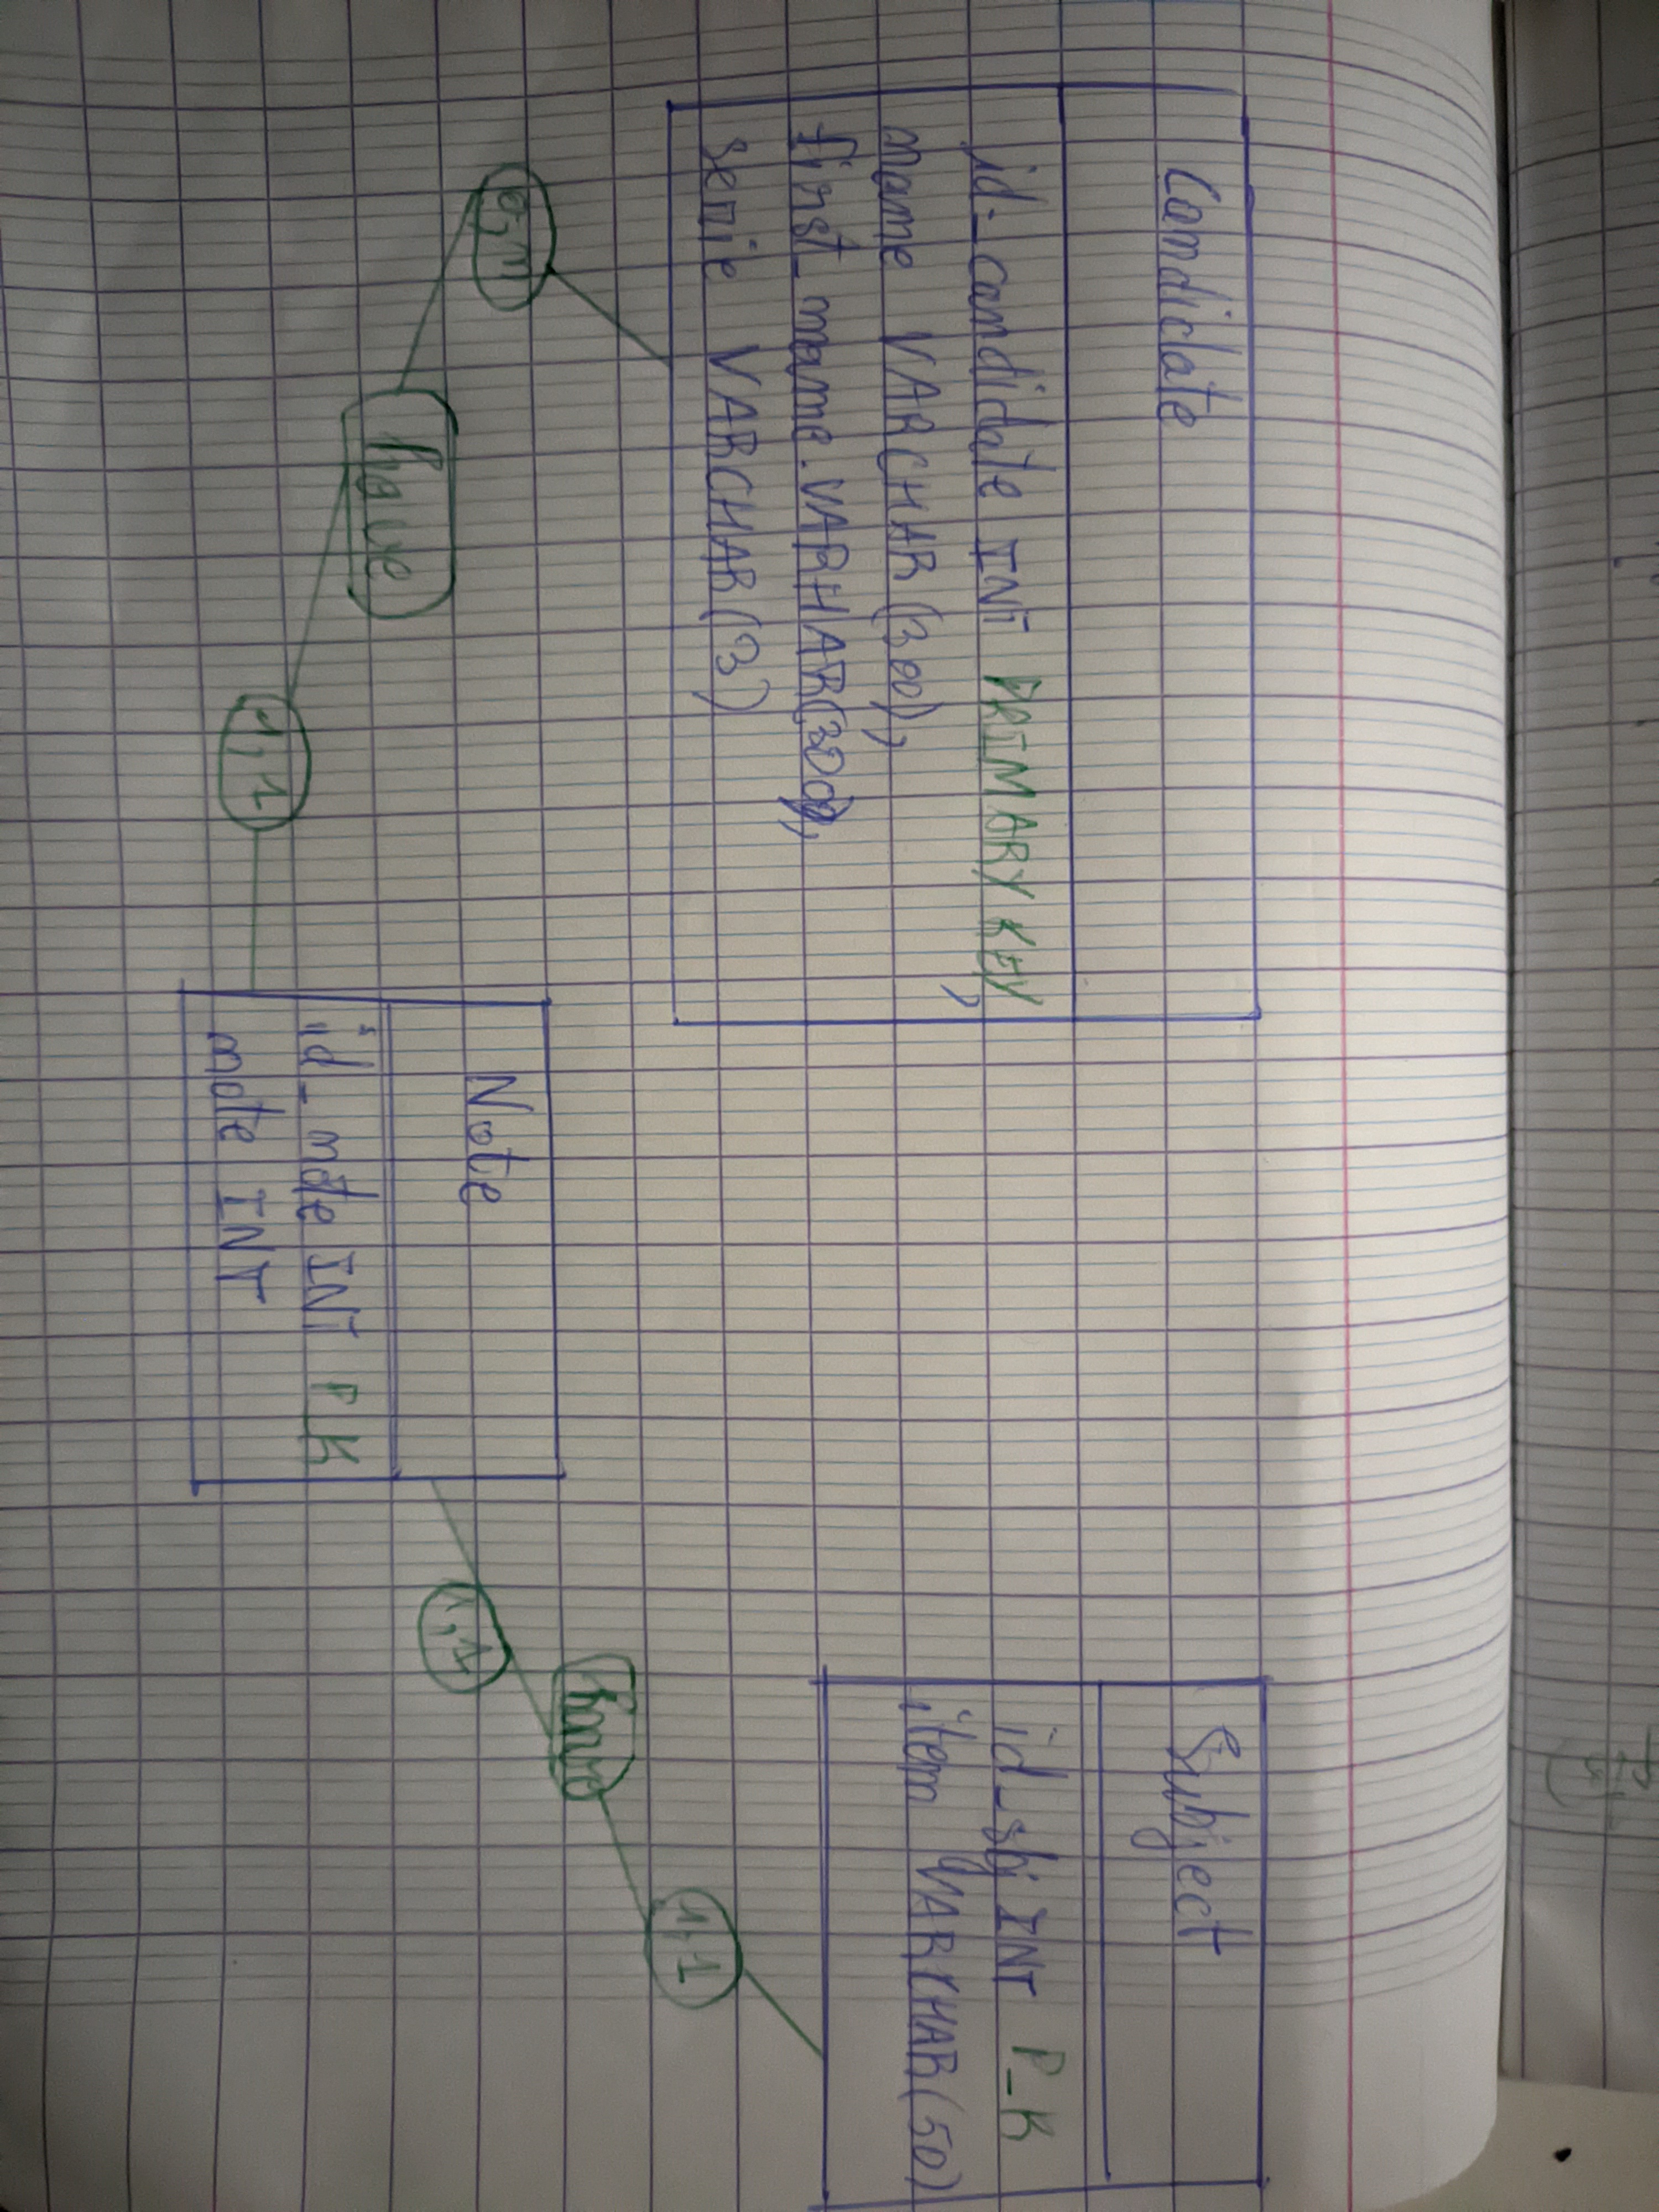 Candidate
id_candidate INT PRIMARY KEY,
name VARCHAR(300),
first_name.VARHAR(300),
serie VARCHAR(3)
have
1,1
Note
id_note INT P_K
note INT
1,1
have
1,1
Subject
id_sbj INT P_K
item VARCHAR(50)